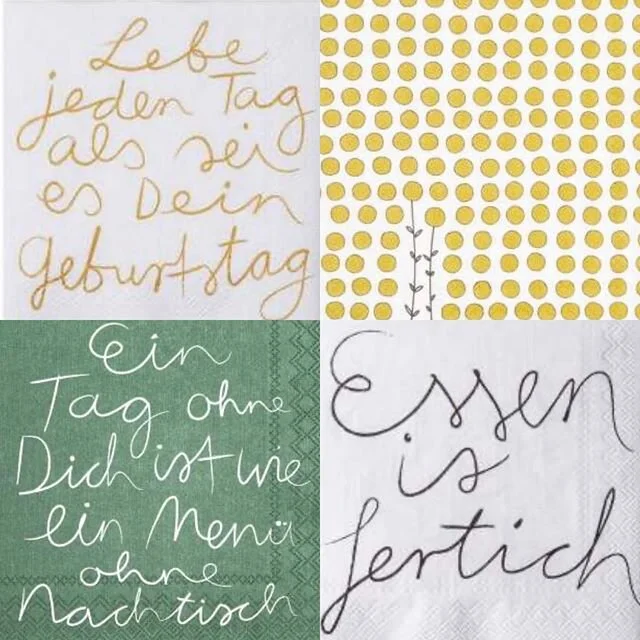 Lebe
jeden Tag
als sei
es Dein
Geburtstag
Ein
Tag ohne
Dich ist wie
ein Menü
ohne
Nachtisch
Essen
is
fertich